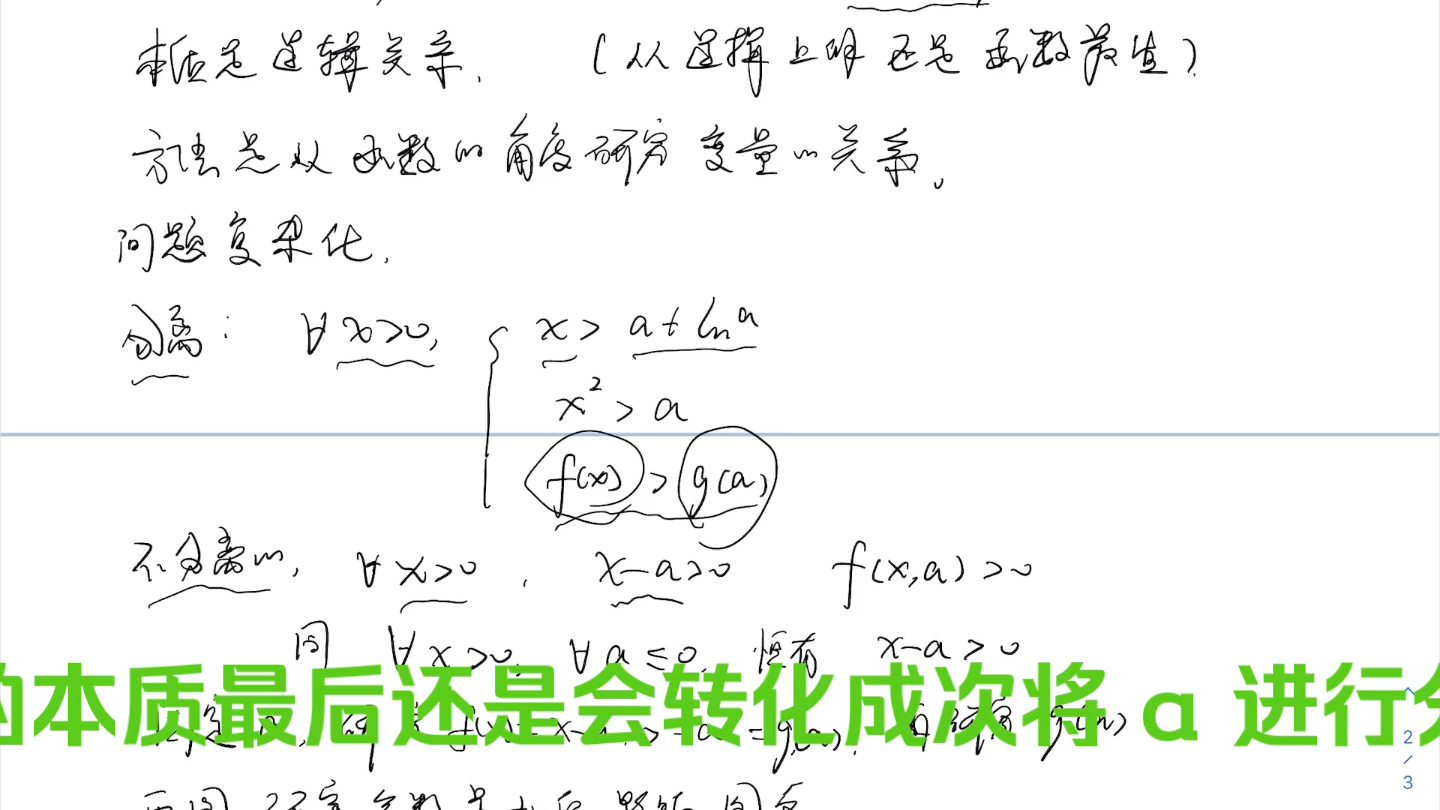 本质是逻辑关系. (从逻辑上讲 还是 函数最值)
方法是从函数的角度研究 变量的关系。
问题复杂化.
分离: ∀x>0, { x > a + ln a
x² > a
f(x) > g(a)
不分离的, ∀x>0, x-a>0 f(x,a)>0
同 ∀x>0, ∀a≤0, 恒有 x-a>0
的本质最后还是会转化成次将 a 进行分
f(x)=x-a>-a=g(a), g(a)
2/3